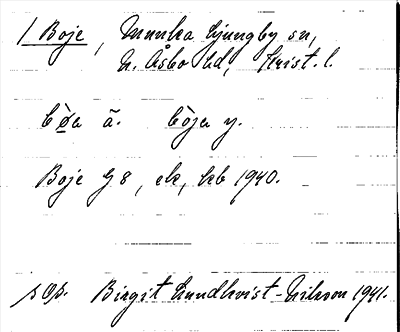 / Boje, Munka Ljungby sn,
N. Åsbo hd, Krist. l.
bø̀a ä. bòja y.
Boje G 8, ek, kb 1940.
s Op. Birgit Lundkvist-Nilsson 1941.